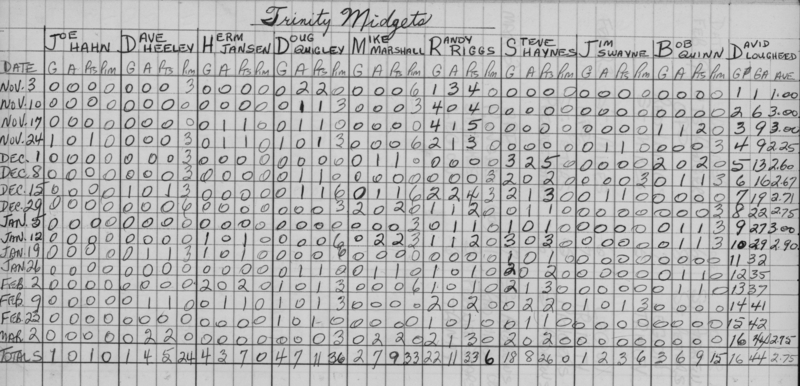 Trinity Midgets
JOE HAHN DAVE HEELEY HERM JANSEN DOUG QUIGLEY MIKE MARSHALL RANDY RIGGS STEVE HAYNES JIM SWAYNE BOB QUINN DAVID LOUGHEED
DATE G A Pts Pim G A Pts Pim G A Pts Pim G A Pts Pim G A Pts Pim G A Pts Pim G A Pts Pim G A Pts Pim G A Pts Pim GP GA AVE
NOV. 3 0 0 0 0 0 0 0 3 0 0 0 0 0 2 2 0 0 0 0 6 1 3 4 0 0 0 0 0 0 0 0 0 0 0 0 0 1 1 1.00
NOV. 10 0 0 0 0 0 0 0 0 0 0 0 0 0 1 1 3 0 0 0 3 4 0 4 0 0 0 0 0 0 0 0 0 0 0 0 0 2 6 3.00
NOV. 17 0 0 0 0 0 0 0 0 0 1 1 0 0 1 1 0 0 0 0 0 4 1 5 0 0 0 0 0 0 0 0 0 1 1 2 0 3 9 3.00
NOV. 24 1 0 1 0 0 0 0 3 0 1 1 0 1 0 1 3 0 0 0 6 2 1 3 0 0 0 0 0 0 1 1 0 0 0 0 3 4 9 2.25
DEC. 1 0 0 0 0 0 0 0 3 0 0 0 0 0 0 0 0 0 1 1 0 0 0 0 0 3 2 5 0 0 0 0 0 2 0 2 0 5 13 2.60
DEC. 8 0 0 0 0 0 0 0 3 0 0 0 0 0 1 1 0 0 0 0 0 0 0 0 3 2 0 2 0 0 0 0 3 0 1 1 3 6 16 2.67
DEC. 15 0 0 0 0 1 0 1 3 0 0 0 0 0 1 1 6 0 1 1 6 2 2 4 3 2 1 3 0 0 1 1 0 0 0 0 0 7 19 2.71
DEC. 29 0 0 0 0 0 0 0 6 0 0 0 0 0 0 0 3 2 0 2 0 1 1 2 0 0 1 1 0 0 0 0 0 0 0 0 3 8 22 2.75
JAN. 5 0 0 0 0 0 0 0 0 0 0 0 0 0 0 0 0 0 0 0 3 0 1 1 0 1 0 1 0 0 0 0 0 0 1 1 3 9 27 3.00
JAN. 12 0 0 0 0 0 0 0 0 1 0 1 0 0 0 0 6 0 2 2 3 1 1 2 0 3 0 3 0 0 0 0 0 0 1 1 3 10 29 2.90
JAN. 19 0 0 0 0 0 1 1 3 1 0 1 0 0 0 0 6 0 0 0 0 0 0 0 0 1 0 1 0 0 0 0 0 0 0 0 0 11 32
JAN 26 0 0 0 0 0 0 0 0 0 0 0 0 0 1 1 0 0 1 1 0 1 0 1 0 2 0 2 0 0 0 0 0 0 1 1 0 12 35
FEB. 2 0 0 0 0 0 0 0 0 2 0 2 0 1 0 1 3 0 0 0 6 1 0 1 0 2 1 3 0 0 0 0 0 0 0 0 0 13 37
FEB. 9 0 0 0 0 0 1 1 0 0 1 1 0 1 0 1 3 0 0 0 0 2 0 2 0 0 2 2 0 1 0 1 3 0 0 0 0 14 41
FEB. 23 0 0 0 0 0 0 0 0 0 0 0 0 1 0 1 0 0 0 0 0 1 0 1 0 0 1 1 0 0 0 0 0 0 0 0 0 15 42
MAR. 2 0 0 0 0 0 2 2 0 0 0 0 0 0 0 0 3 0 2 2 0 2 1 3 0 2 0 2 0 0 0 0 0 0 0 0 0 16 44 2.75
TOTALS 1 0 1 0 1 4 5 24 4 3 7 0 4 7 11 36 2 7 9 33 22 11 33 6 18 8 26 0 1 2 3 6 3 6 9 15 16 44 2.75